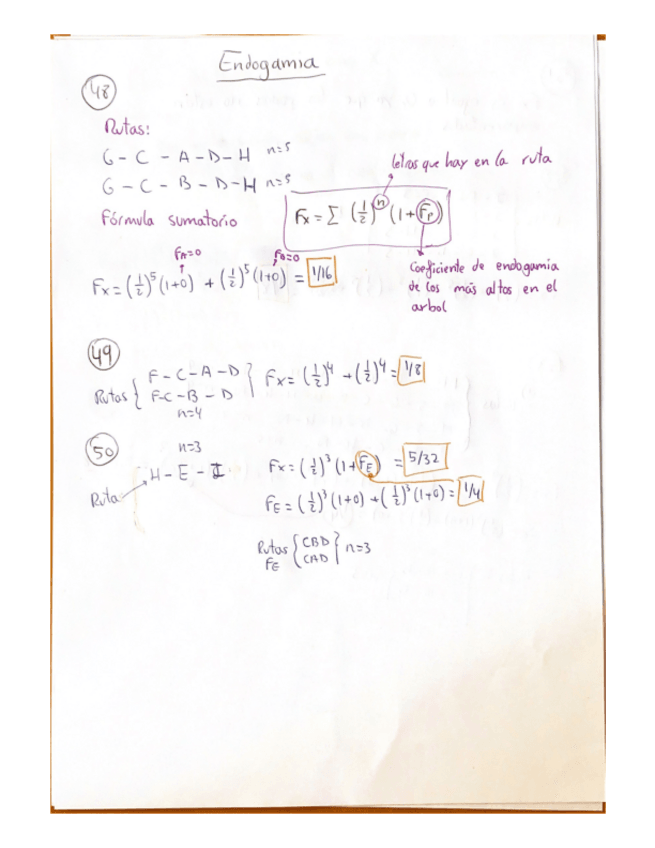 Endogamia
48
Rutas:
G - C - A - D - H n=5
G - C - B - D - H n=5
letras que hay en la ruta
Fórmula sumatorio
Fx = Σ (1/2)^n (1+Fp)
FA=0 FB=0
Fx = (1/2)^5 (1+0) + (1/2)^5 (1+0) = 1/16
Coeficiente de endogamia
de los más altos en el
arbol
49
Rutas { F - C - A - D
F - C - B - D }
n=4
Fx = (1/2)^4 + (1/2)^4 = 1/8
50
n=3
H - E - I
Ruta
Fx = (1/2)^3 (1+FE) = 5/32
FE = (1/2)^3 (1+0) + (1/2)^3 (1+0) = 1/4
Rutas FE { CBD
CAD } n=3